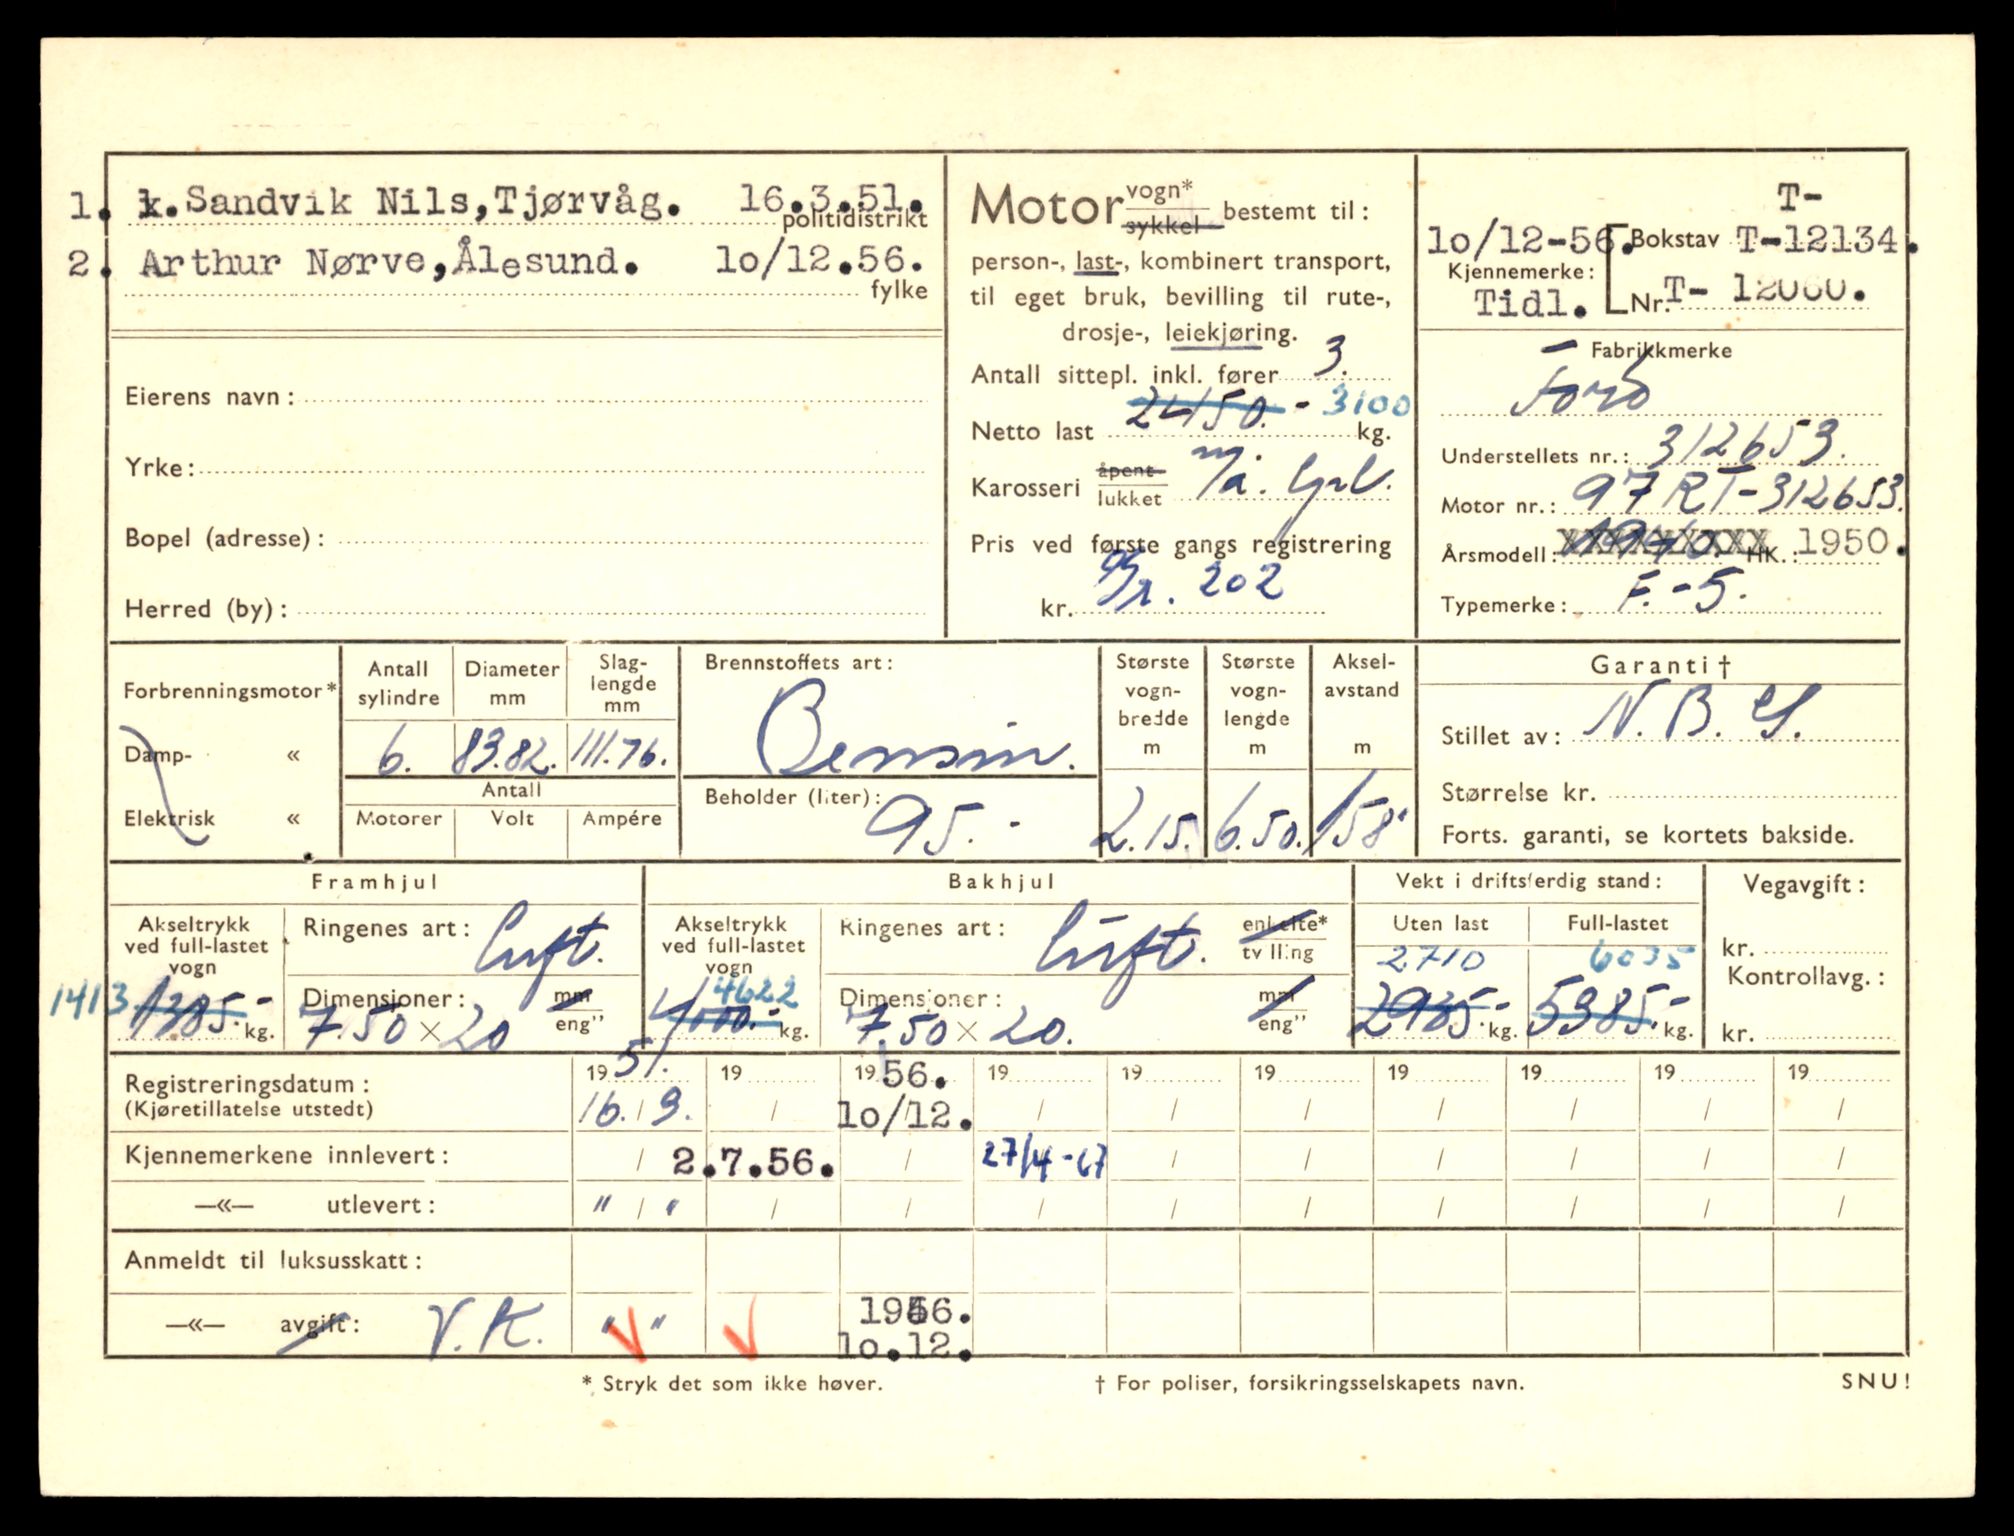 1. k. Sandvik Nils, Tjørvåg. 16.3.51.
politidistrikt
2. Arthur Nørve, Ålesund. 10/12.56.
fylke
Eierens navn:
Yrke:
Bopel (adresse):
Herred (by):
Motor vogn* sykkel bestemt til:
person-, last-, kombinert transport,
til eget bruk, bevilling til rute-,
drosje-, leiekjøring.
Antall sittepl. inkl. fører 3.
Netto last 2450.- 3100 kg.
Karosseri åpent lukket
Pris ved første gangs registrering
kr. 202
T-
10/12-56. Bokstav T-12134.
Kjennemerke:
Tidl. Nr. T- 12060.
Fabrikkmerke
Ford
Understellets nr.: 312653.
Motor nr.: 97 RT-312653.
Årsmodell: HK.: 1950.
Typemerke: F.-5.
Forbrenningsmotor*
Damp- «
Elektrisk «
Antall sylindre
6.
Diameter mm
83.82.
Slag-lengde mm
111.76.
Antall
Motorer Volt Ampére
Brennstoffets art:
Bensin.
Beholder (liter): 95.-
Største vogn-bredde m
2.15.
Største vogn-lengde m
6.50.
Aksel-avstand m
158"
Garanti †
Stillet av:
Størrelse kr.
Forts. garanti, se kortets bakside.
Framhjul
Akseltrykk ved full-lastet vogn
1413 1385.- kg.
Ringenes art: Luft.
Dimensjoner: mm eng"
7.50 × 20
Bakhjul
Akseltrykk ved full-lastet vogn
4622
4000.- kg.
Ringenes art: Luft. enkelte* tvilling
Dimensjoner: mm eng"
7.50 × 20.
Vekt i driftsferdig stand:
Uten last Full-lastet
2710 6035
2935.- kg. 5385.- kg.
Vegavgift:
kr.
Kontrollavg.:
kr.
Registreringsdatum: 19 51. 19 19 56. 19 19 19 19 19 19 19
(Kjøretillatelse utstedt) 16./3. / 10/12. / / / / / / /
Kjennemerkene innlevert: / 2.7.56. / 27/4-67 / / / / / /
—«— utlevert: " / " / / / / / / / / /
Anmeldt til luksusskatt:
—«— avgift: V.K. " " 1956.
10.12.
* Stryk det som ikke høver.
† For poliser, forsikringsselskapets navn.
SNU!